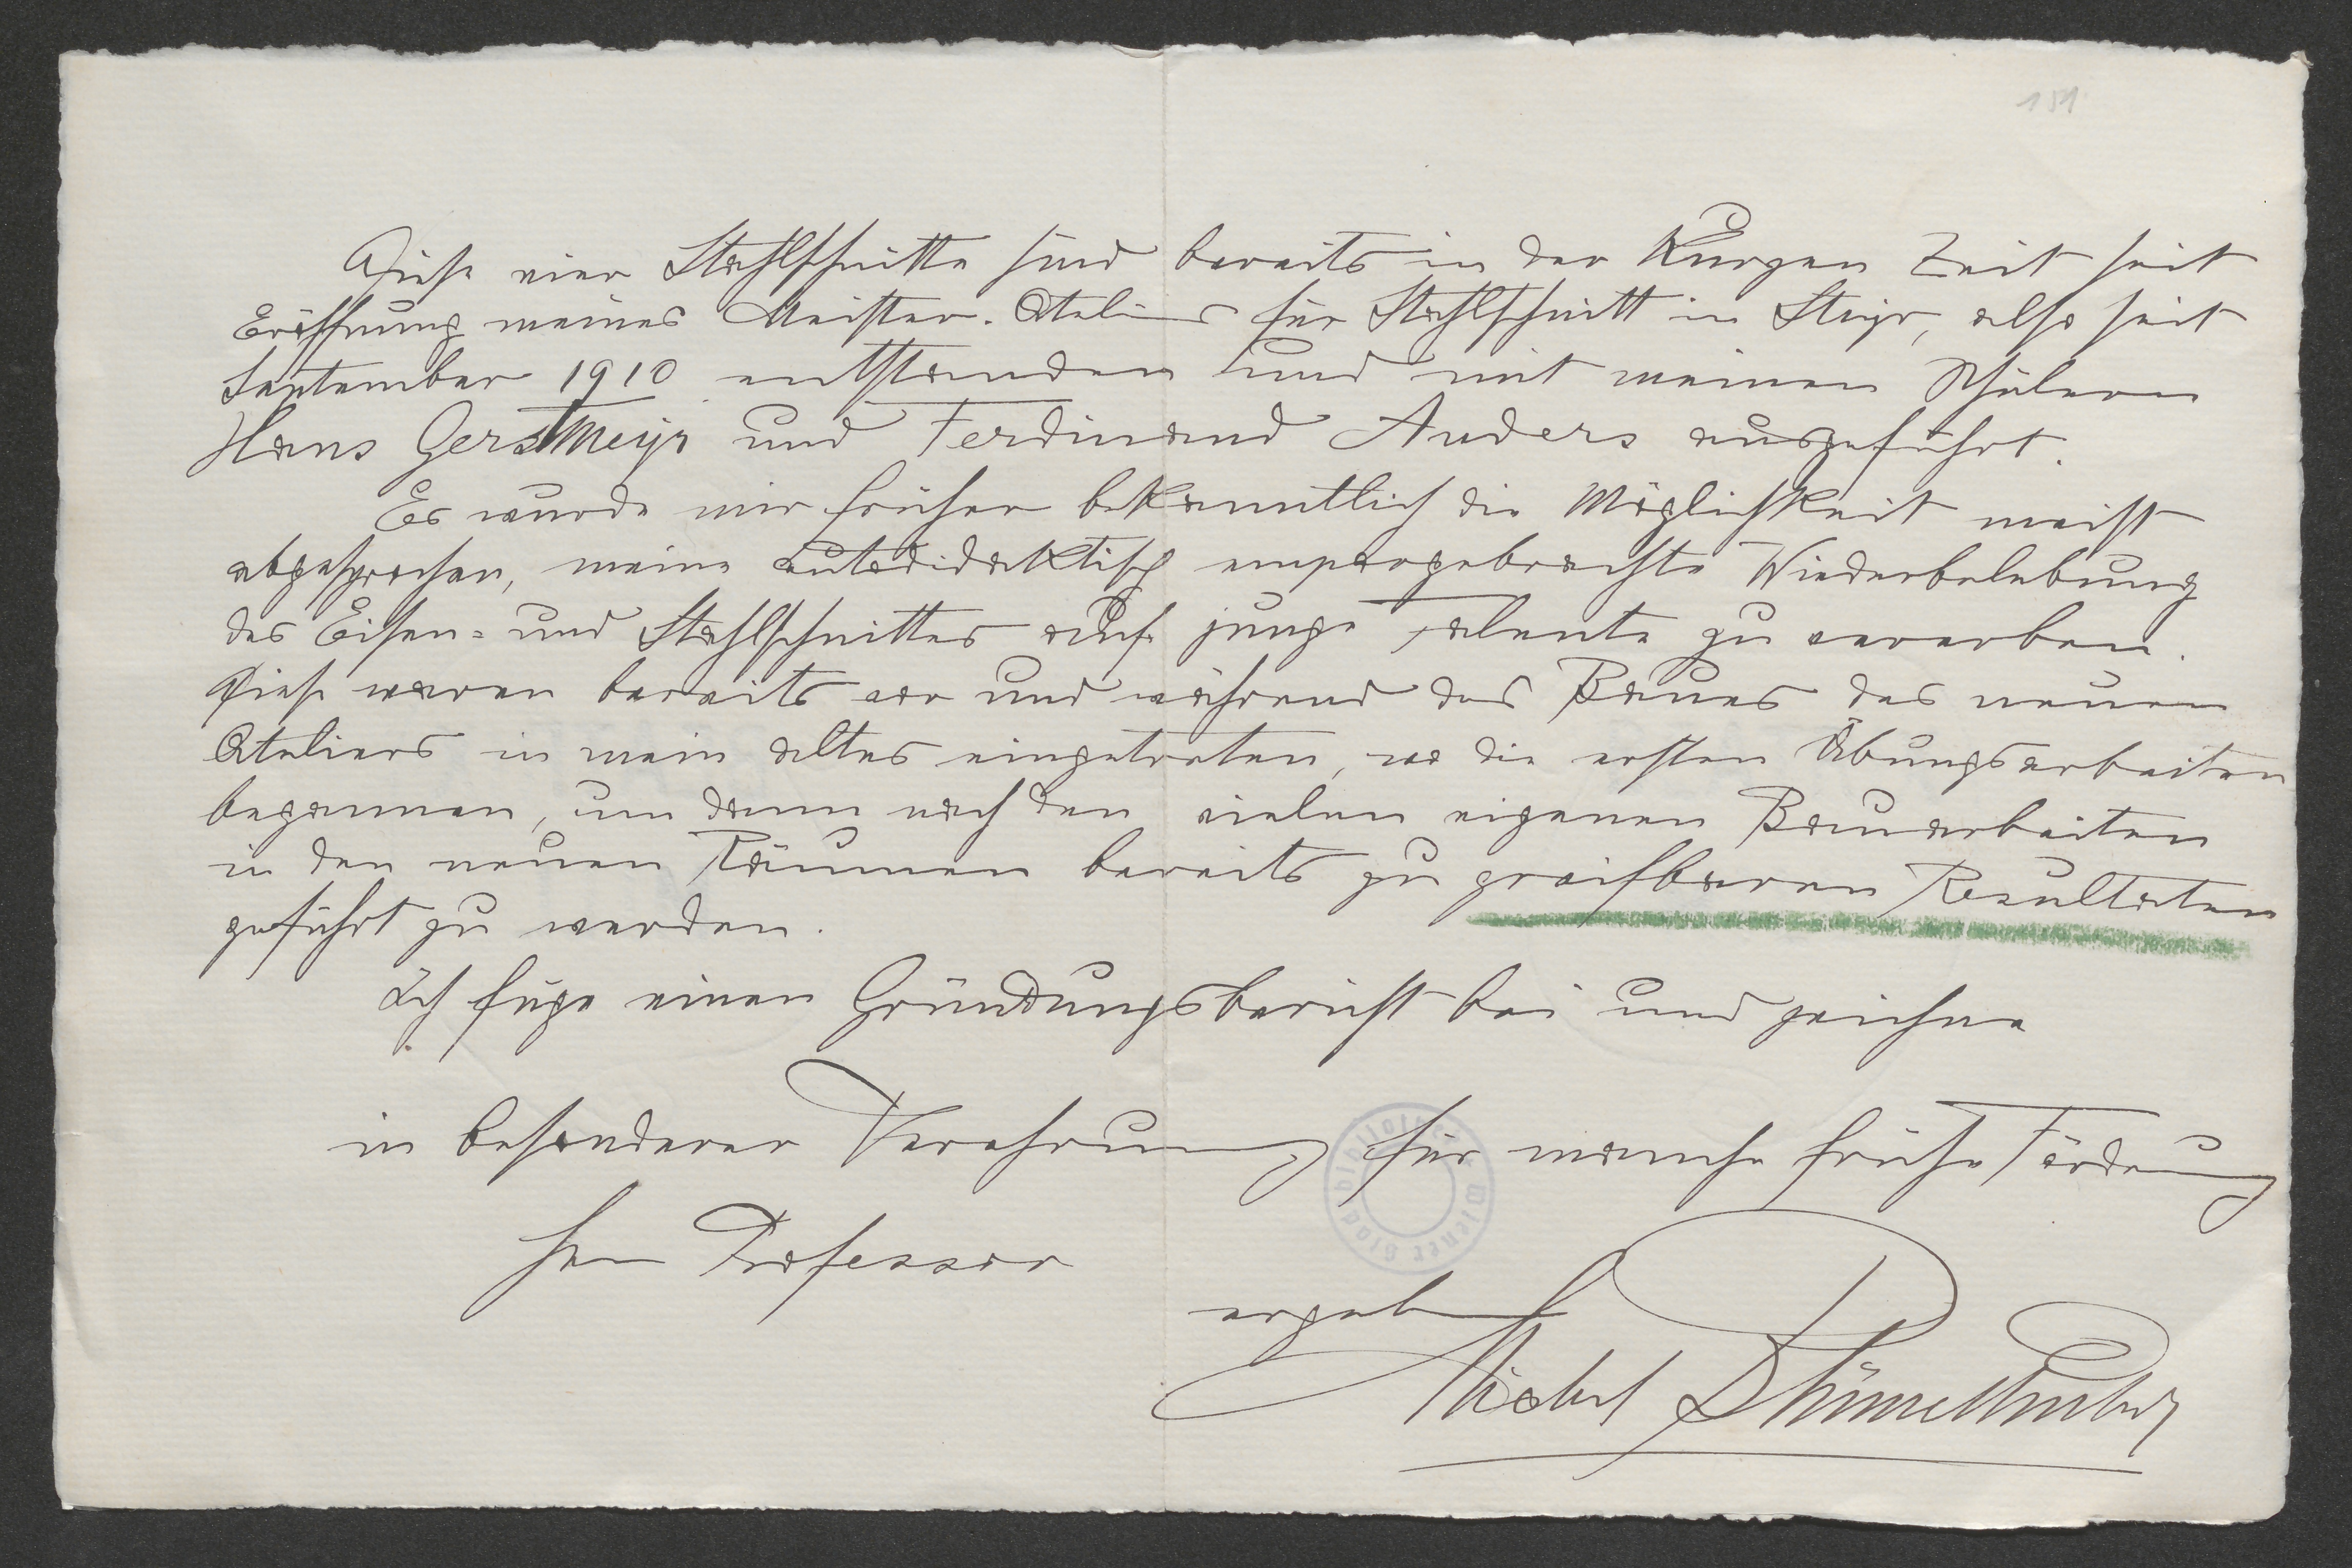 151
Diese vier Stahlschnitte sind bereits in der Kurzen Zeit seit
Eröffnung meines Meister-Ateliers für Stahlschnitt in Steyr, also seit
September 1910 entstanden und mit meinen Schülern
Hans Gerstmeyr und Ferdinand Anders ausgeführt.
Es wurde mir früher bekanntlich die Möglichkeit meist
abgesprochen, meine autodidaktisch emporgebrachte Wiederbelebung
des Eisen= und Stahlschnittes auf junge Talente zu vererben.
Diese waren bereits vor und während des Baues des neuen
Ateliers in mein altes eingetreten, wo die ersten Übungsarbeiten
begannen, um dann nach den vielen eigenen Bauarbeiten
in den neuen Räumen bereits zu greifbaren Resultaten
geführt zu werden.
Ich füge einen Gründungsbericht bei und zeichne
in besonderer Verehrung für manche frühe Förderung
Herrn Professor
ergeben
Michael Blümelhuber
Wiener Stadtbibliothek